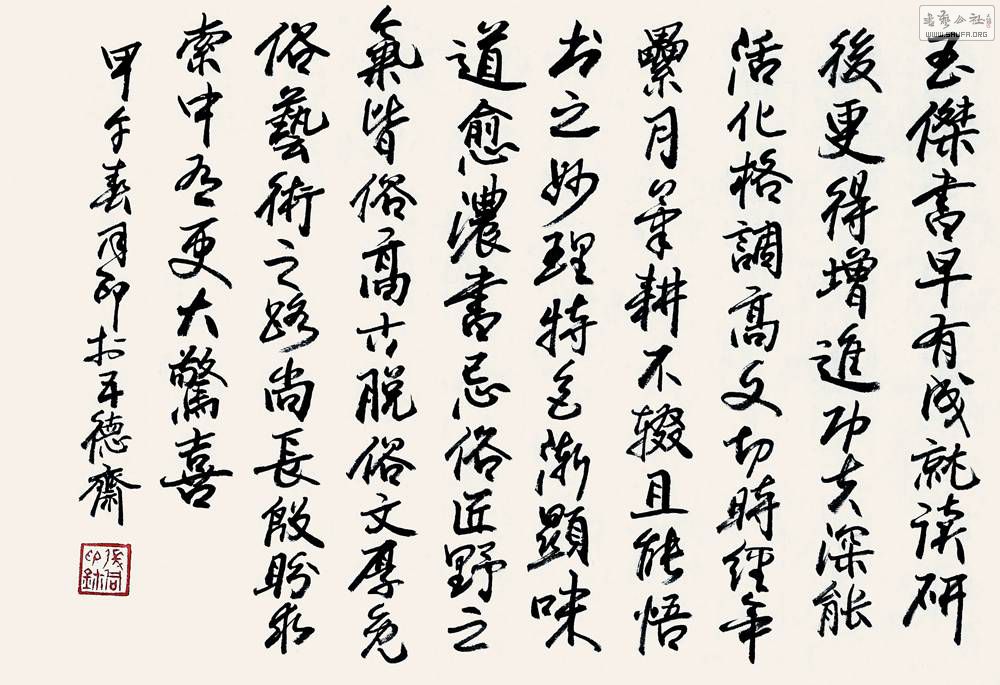 玉傑書早有成就读研
後更得增進功夫深能
活化格調高又切時經年
纍月笔耕不辍且能悟
书之妙理特色漸顯味
道愈濃書忌俗匠野之
氣皆俗高古脱俗文厚免
俗藝術之路尚長殷盼求
索中有更大驚喜
甲午春月印於平德齋
書藝公社
WWW.SHUFA.ORG